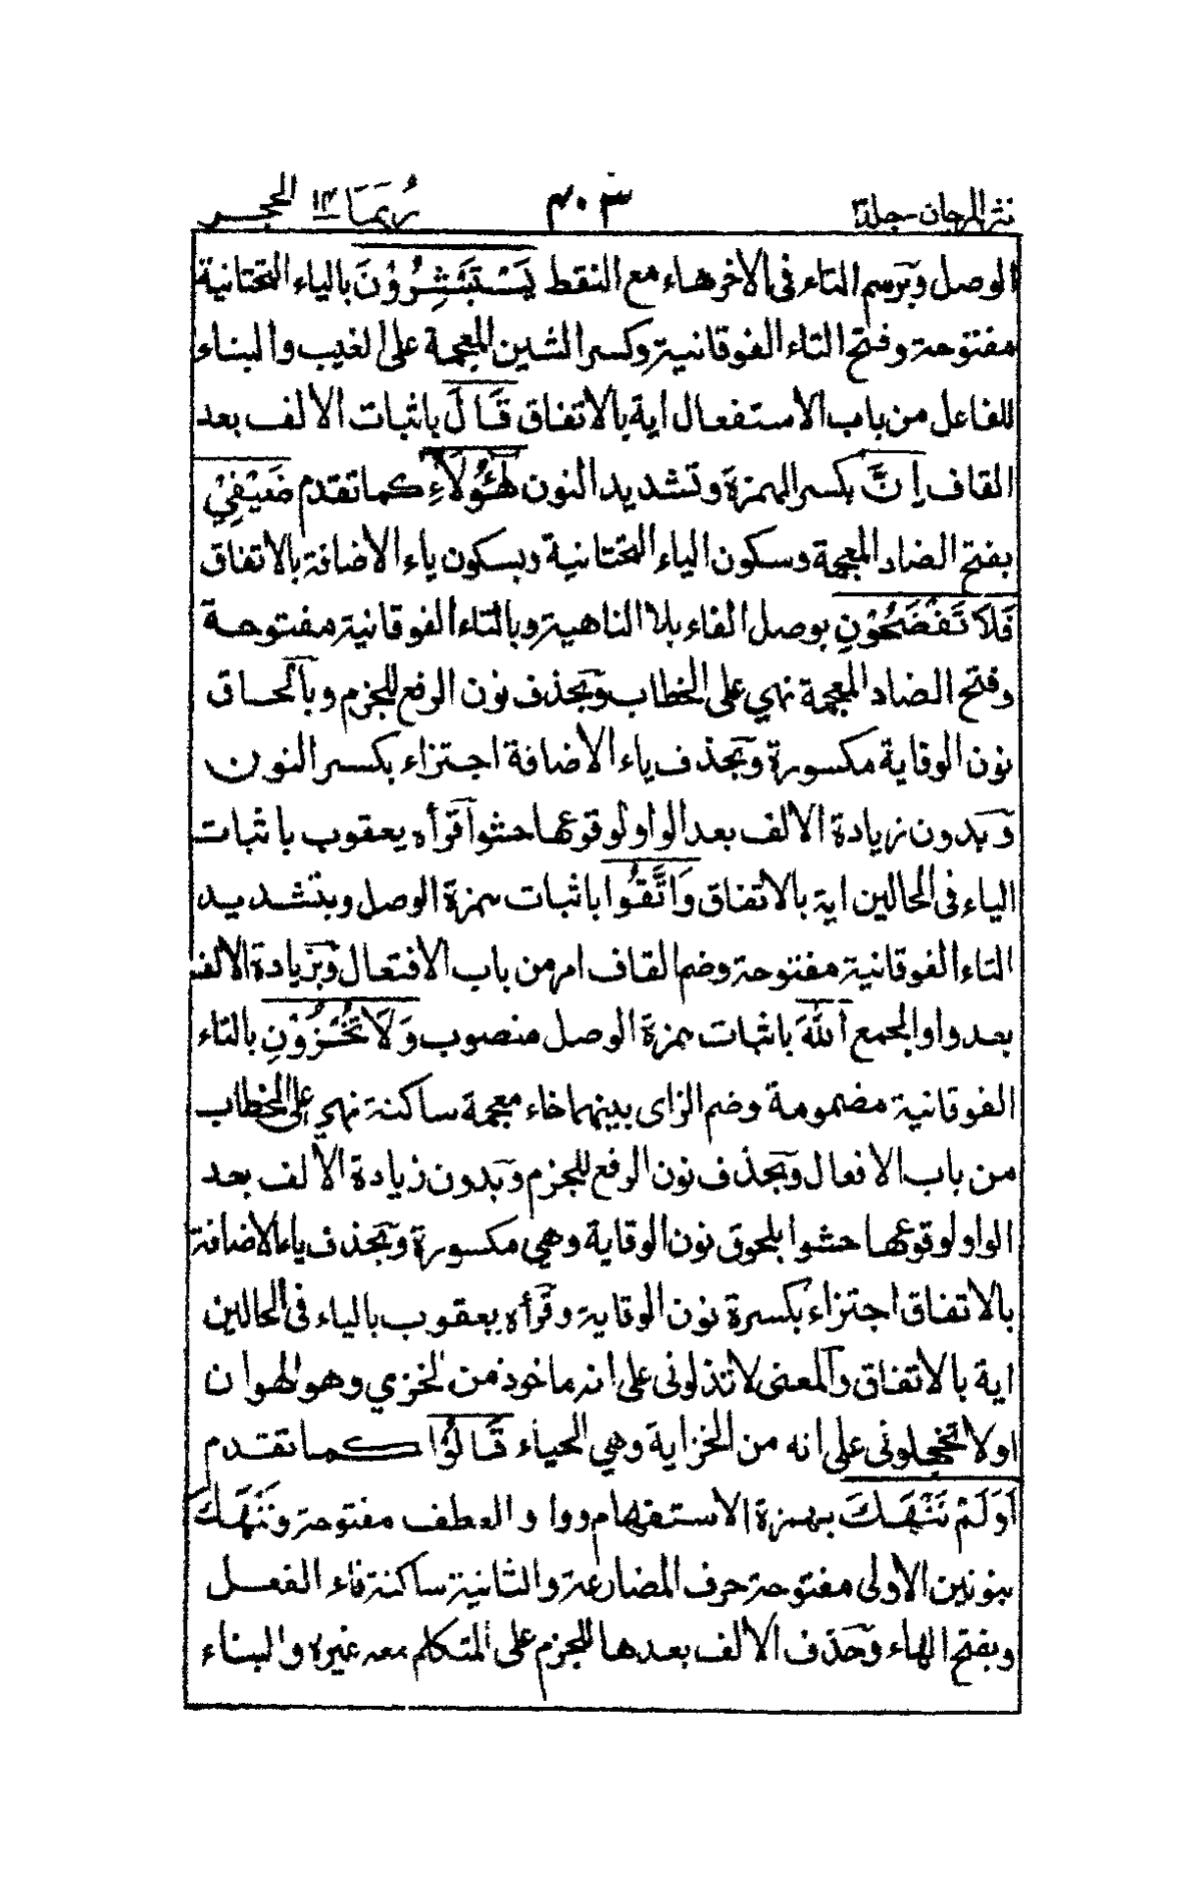 نثر المرجان - جلد ٣ ٤٠٣ رُبَمَا ١٤ الحجر
الوصل وبرسم التاء في الآخر هاء مع النقط يَسْتَبْشِرُوْنَ بالياء التحتانية
مفتوحة وفتح التاء الفوقانية وكسر الشين المعجمة على الغيب والبناء
للفاعل من باب الاستفعال اية بالاتفاق قَالَ باثبات الالف بعد
القاف اِنَّ بكسر الهمزة وتشديد النون هٰٓؤُلَآءِ كما تقدم ضَيْفِيْ
بفتح الضاد المعجمة وسكون الياء التحتانية وبسكون ياء الاضافة بالاتفاق
فَلَا تَفْضَحُوْنِ بوصل الفاء بلا الناهية وبالتاء الفوقانية مفتوحة
وفتح الضاد المعجمة نهي على الخطاب وبحذف نون الرفع للجزم وبالحاق
نون الوقاية مكسورة وبحذف ياء الاضافة اجتزاء بكسر النون
وبدون زيادة الالف بعد الواو لوقوعها حشوا قرأه يعقوب باثبات
الياء في الحالين اية بالاتفاق وَاتَّقُوا باثبات همزة الوصل وبتشديد
التاء الفوقانية مفتوحة وضم القاف امر من باب الافتعال وبزيادة الالف
بعد واو الجمع اللهَ باثبات همزة الوصل منصوب وَلَا تُخْزُوْنِ بالتاء
الفوقانية مضمومة وضم الزاى بينهما خاء معجمة ساكنة نهي على الخطاب
من باب الافعال وبحذف نون الرفع للجزم وبدون زيادة الالف بعد
الواو لوقوعها حشوا بلحوق نون الوقاية وهي مكسورة وبحذف ياء الاضافة
بالاتفاق اجتزاء بكسرة نون الوقاية وقرأه يعقوب بالياء في الحالين
اية بالاتفاق والمعنى لا تذلوني على انه ماخوذ من الخزي وهو الهوان
او لا تخجلوني على انه من الخزاية وهي الحياء قَالُوْا كما تقدم
اَوَلَمْ نَنْهَكَ بهمزة الاستفهام وواو العطف مفتوحة ونَنْهَكَ
بنونين الاولى مفتوحة حرف المضارعة والثانية ساكنة فاء الفعل
وبفتح الهاء وحذف الالف بعدها للجزم على المتكلم معه غيره والبناء